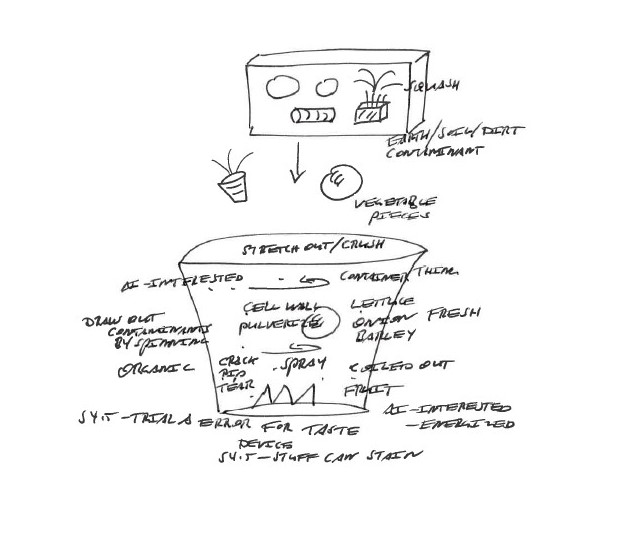 SQUASH
EARTH/SOIL/DIRT
CONTAMINANT
VEGETABLE
PIECES
STRETCH OUT/CRUSH
AI-INTERESTED
CONTAINER THING
CELL WALL
PULVERIZE
LETTUCE
ONION
BARLEY
FRESH
DRAW OUT
CONTAMINANTS
BY SPINNING
ORGANIC
CRACK
RIP
TEAR
SPRAY
COILED OUT
FRUIT
-TRIAL & ERROR FOR TASTE
DEVICE
-STUFF CAN STAIN
AI-INTERESTED
-ENERGIZED